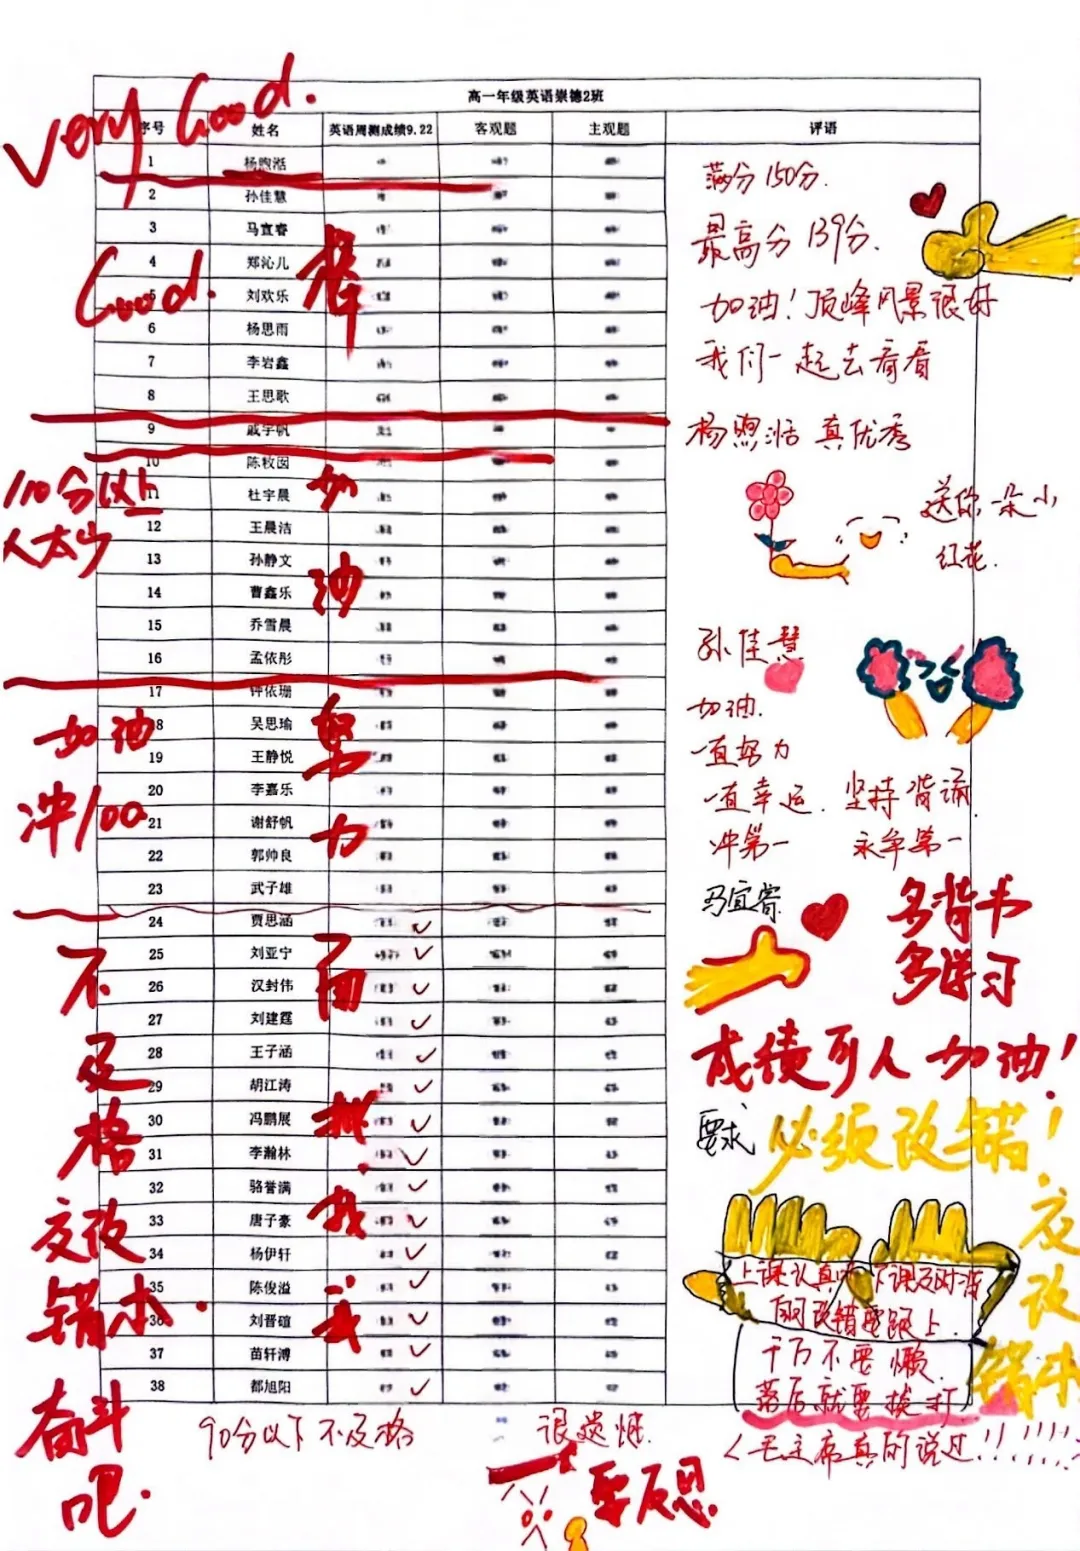 高一年级英语崇德2班
序号 姓名 英语周测成绩9.22 客观题 主观题 评语
1 杨煦湉
2 孙佳慧
3 马宜睿
4 郑沁儿
5 刘欢乐
6 杨思雨
7 李岩鑫
8 王思歌
9 戚宇帆
10 陈枚囡
11 杜宇晨
12 王晨洁
13 孙静文
14 曹鑫乐
15 乔雪晨
16 孟依彤
17 钟依珊
18 吴思瑜
19 王静悦
20 李嘉乐
21 谢舒帆
22 郭帅良
23 武子雄
24 贾思涵
25 刘亚宁
26 汉封伟
27 刘建霆
28 王子涵
29 胡江涛
30 冯鹏展
31 李瀚林
32 骆誉满
33 唐子豪
34 杨伊轩
35 陈俊溢
36 刘晋暄
37 苗轩溥
38 都旭阳
Very Good.
Good.
棒
110分以上
人太少
加
油
加油
冲100
努
力
不
及
格
交改
错本.
奋斗
吧.
满分150分.
最高分139分.
加油!顶峰风景很好
我们一起去看看
杨煦湉 真优秀
送你一朵小
红花.
孙佳慧
加油.
一直努力
一直幸运. 坚持背诵
冲第一 永争第一
马宜睿
多背书
多学习
成绩歹人加油!
要求 必须改错!
交
改
错本
上课认真 下课及时
改错要跟上.
千万不要懒.
落后就要挨打.
〈毛主席真的说过!!!!!!
90分以下不及格
很遗憾.
要反思.